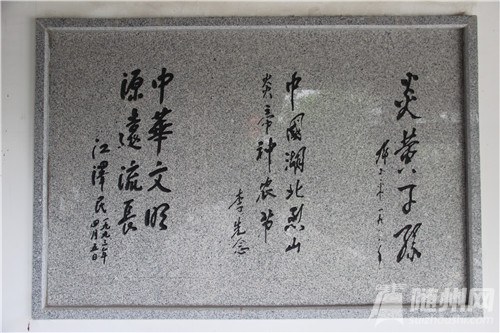 炎黄子孙
中國湖北烈山
炎帝神农节
李先念
中華文明
源遠流長
江澤民
一九九三年
四月五日
随州网